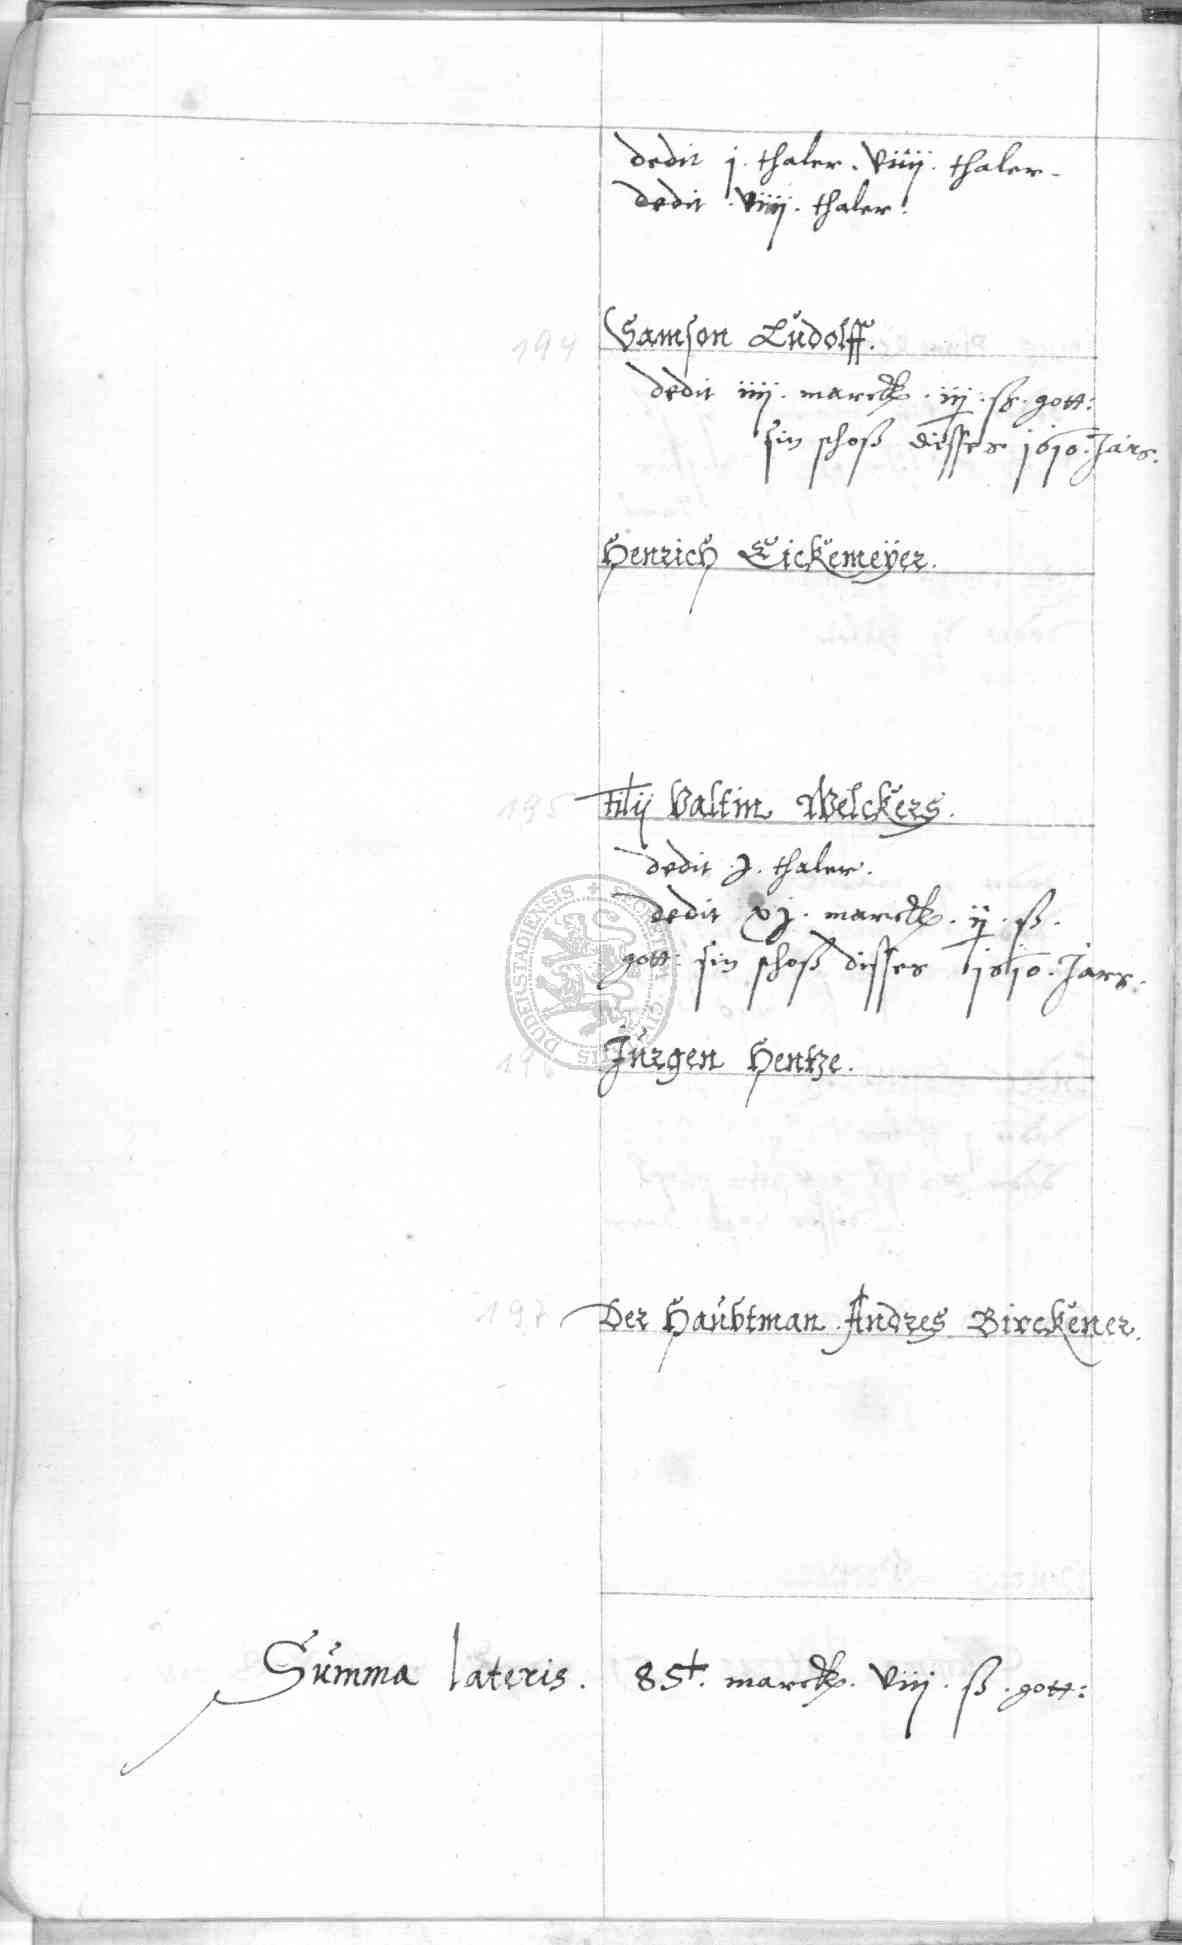 dedit j. thaler. viiij. thaler.
dedit viiij. thaler.
194 Samson Ludolff.
dedit iiij. marck. iij. ß. gott:
sin schoß disses 1610. Jars.
Henrich Eickemeÿer.
195 filij Valtin Welckers.
dedit j. thaler.
dedit vj. marck. ij. ß.
gott: sin schoß disses 1610. Jars.
196 Jürgen Hentze.
197 Der Haubtman Andres Birckener.
Summa lateris. 85. marck. viij. ß. gott:
SECRETUM CIVITATIS DUDERSTADIENSIS